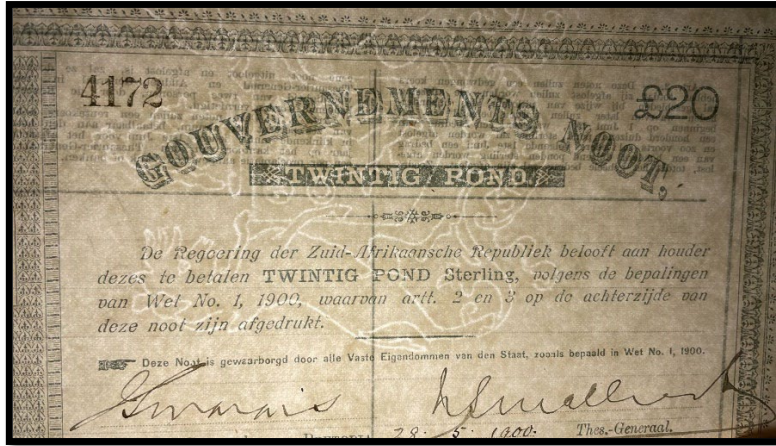 4172 £20
GOUVERNEMENTS NOOT,
TWINTIG POND.
De Regeering der Zuid-Afrikaansche Republiek belooft aan houder
dezes te betalen TWINTIG POND Sterling, volgens de bepalingen
van Wet No. 1, 1900, waarvan artt. 2 en 3 op de achterzijde van
deze noot zijn afgedrukt.
Deze Noot is gewaarborgd door alle Vaste Eigendommen van den Staat, zooals bepaald in Wet No. 1, 1900.
28. 5. 1900. Thes.-Generaal.